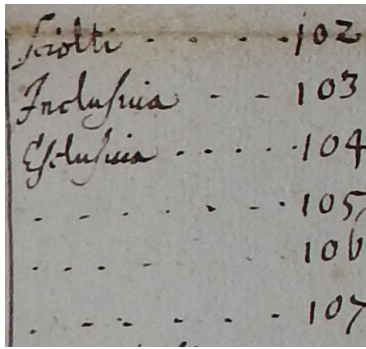 Sciolti - - - - - 102
Inclusiva - - - 103
Esclusiva - - - - - 104
- - - - - - - 105
- - - - 106
- - - - - - - 107